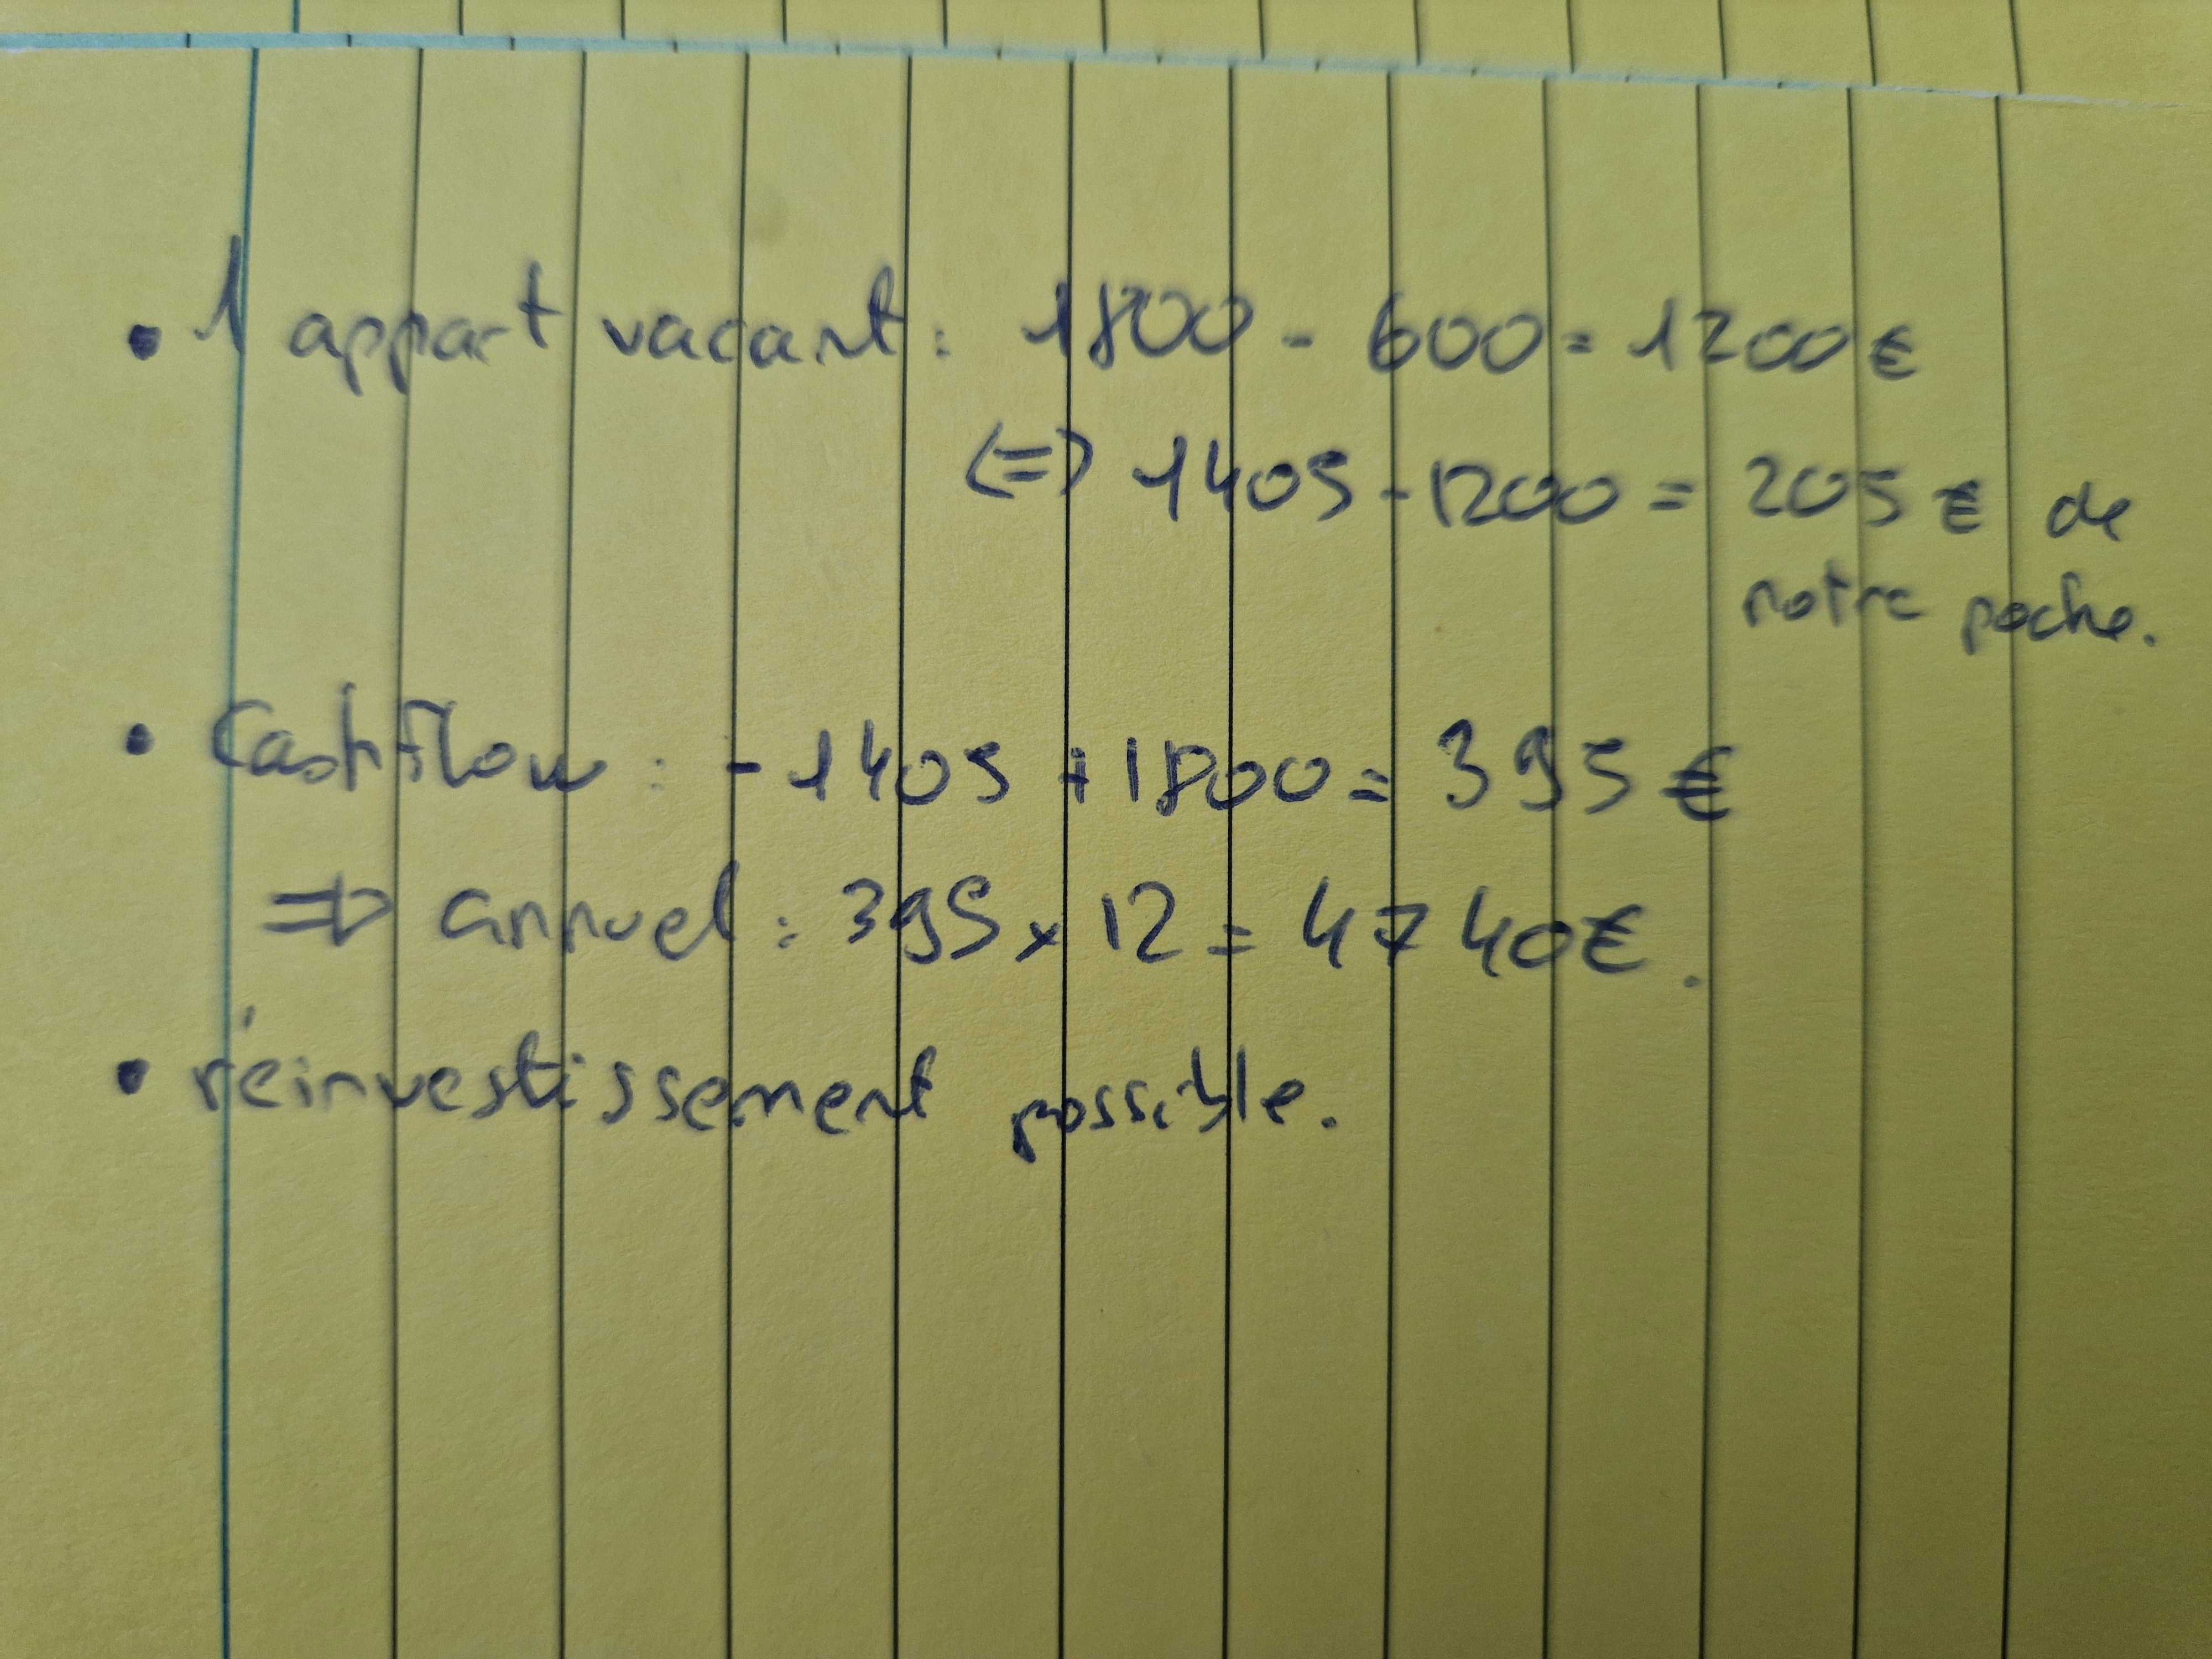 • 1 appart vacant : 1800 - 600 = 1200 €
(=) 1405 - 1200 = 205 € de
notre poche.
• Cashflow : - 1405 + 1800 = 395 €
=> annuel : 395 x 12 = 4740€.
• réinvestissement possible.